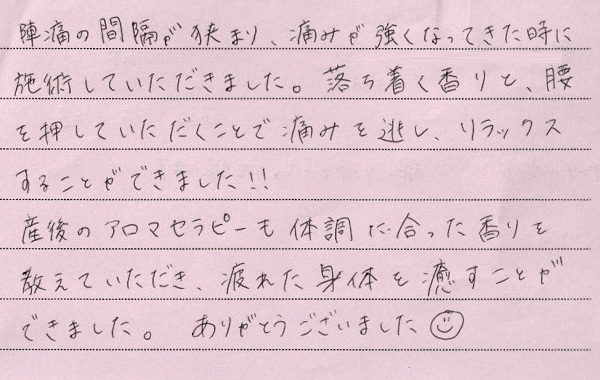 陣痛の間隔が狭まり、痛みが強くなってきた時に
施術していただきました。落ち着く香りと、腰
を押していただくことで痛みを逃し、リラックス
することができました!!
産後のアロマセラピーも体調に合った香りを
教えていただき、疲れた身体を癒すことが
できました。 ありがとうございました☺